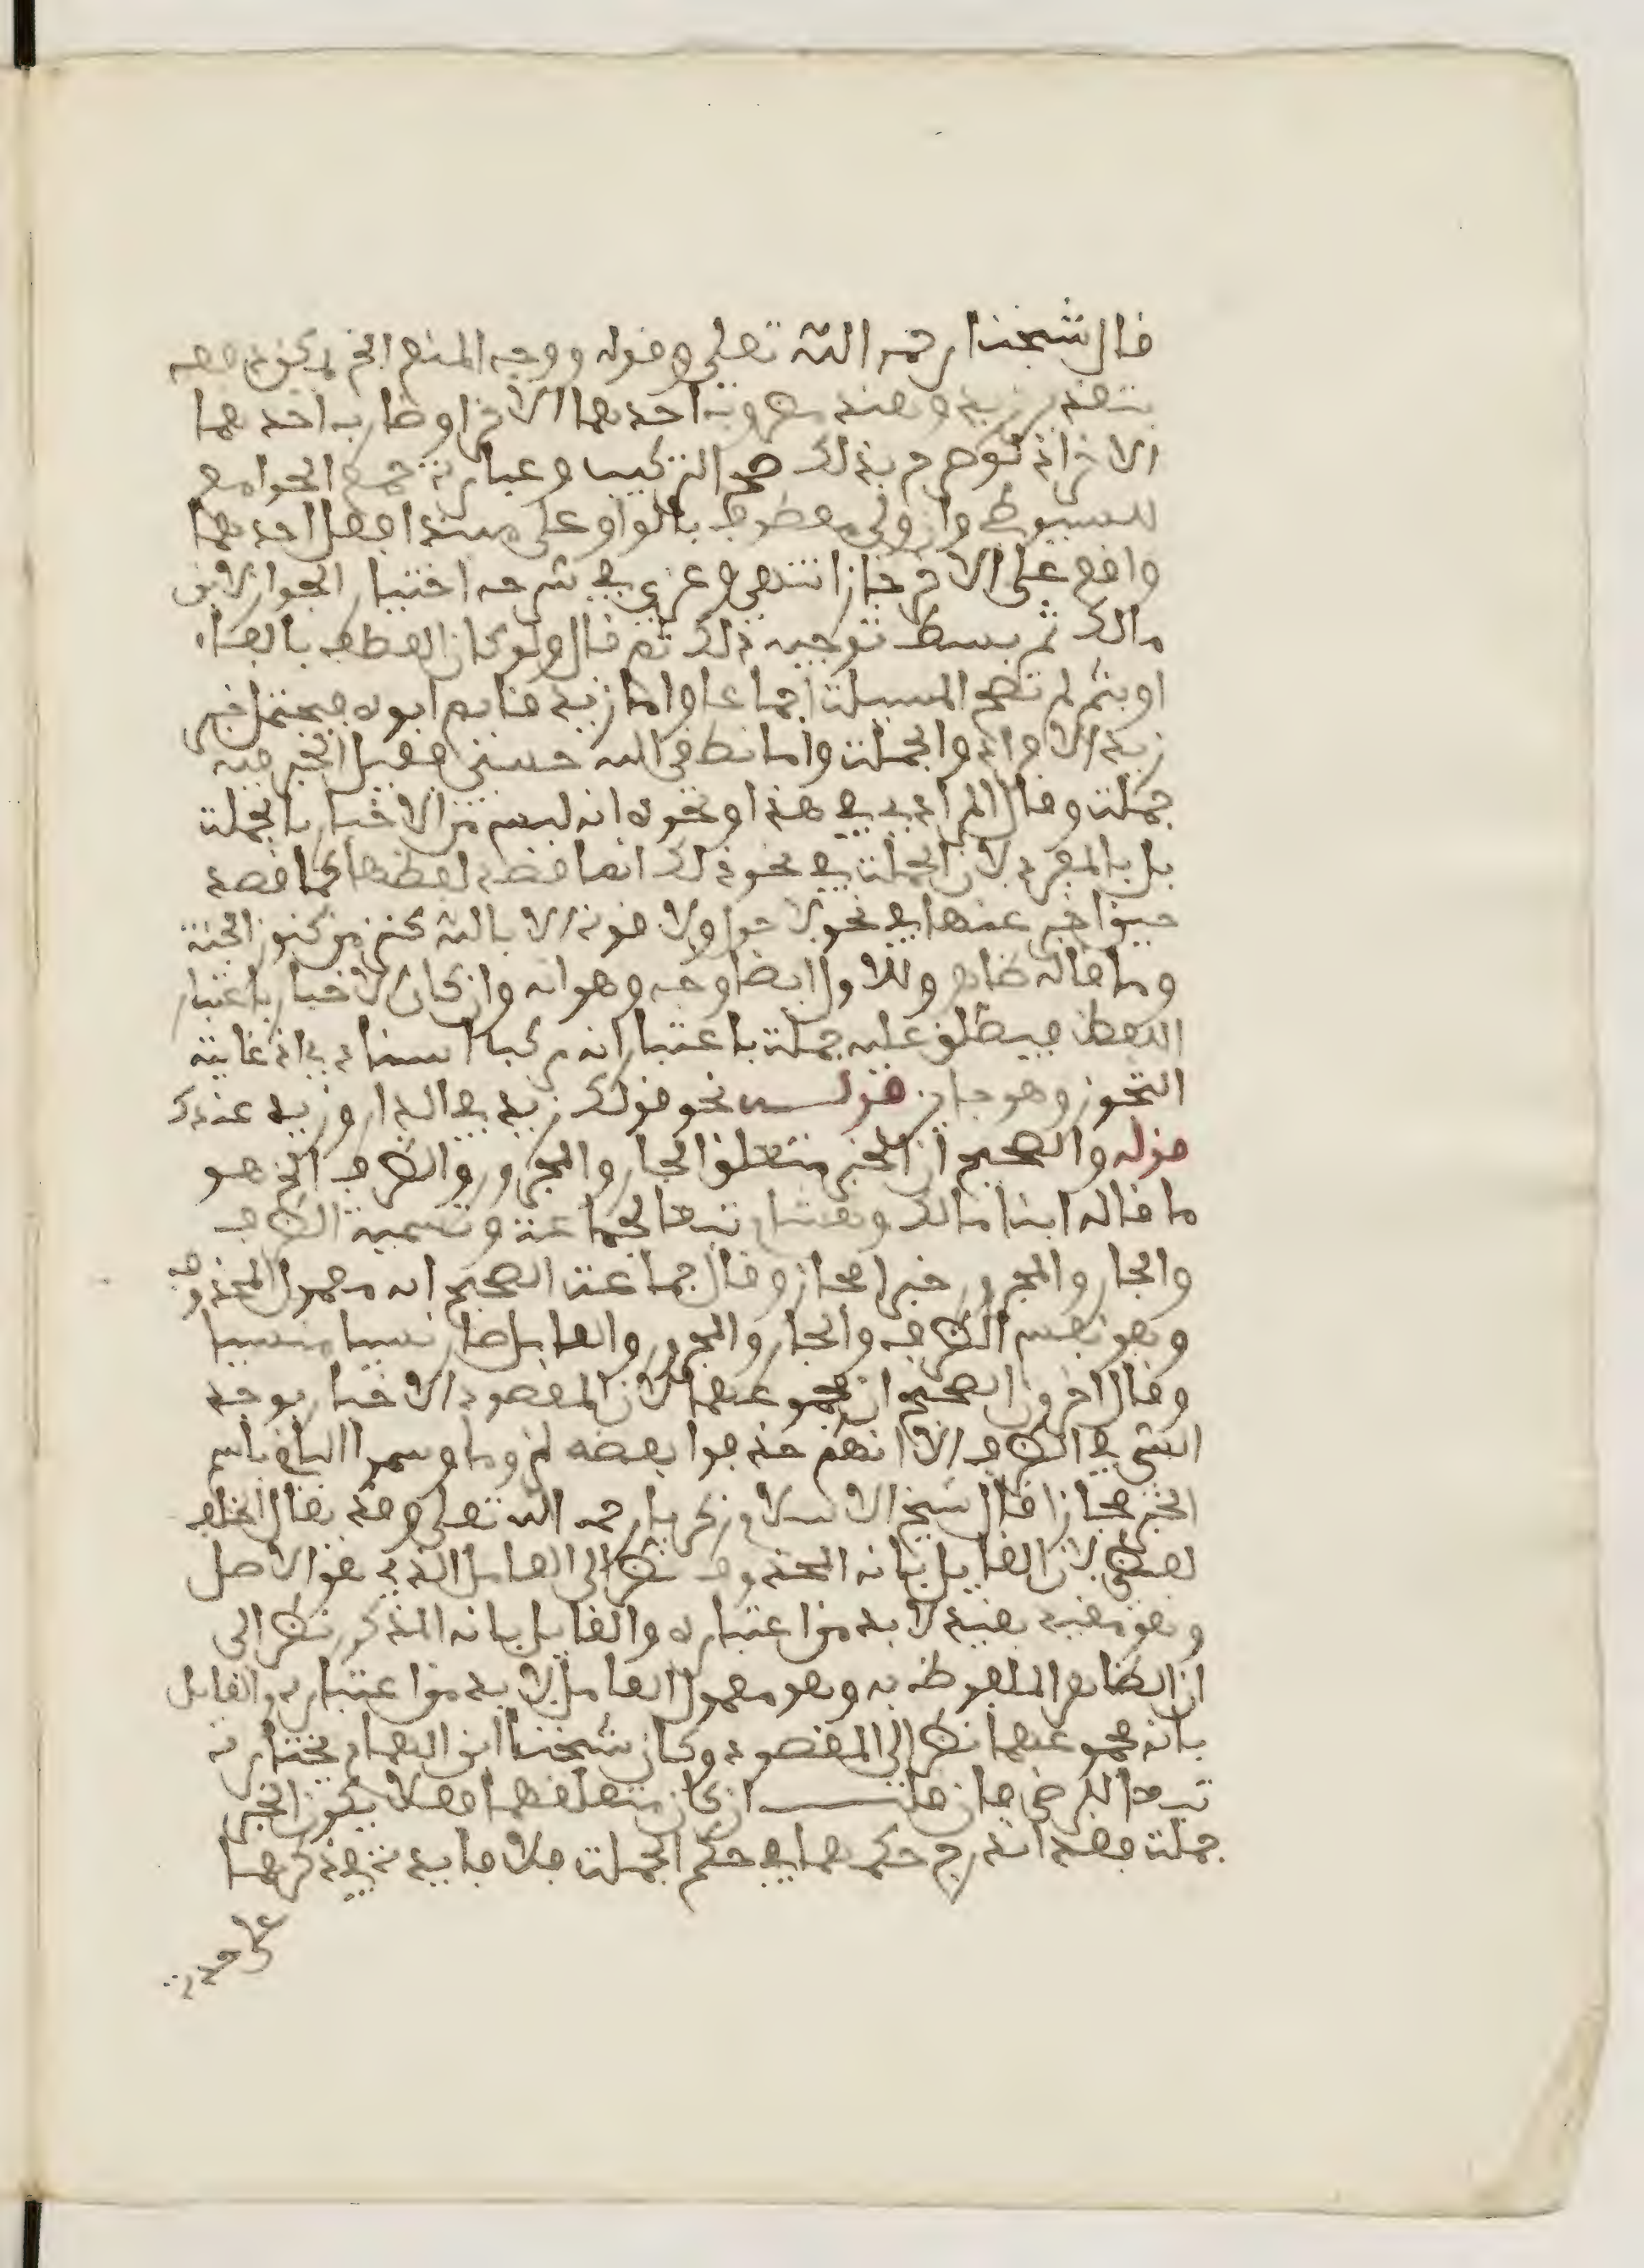 قال شيخنا رحمه الله تعلى وقوله ووجه المنع الخ لم يكن
بتقدير زيد وهند مضروب احدهما الاخر او ضاربه احدهما
الاخر اذ لو صرح بذلك صح التركيب وعبارة جمع الجوامع
للسيوطي وان ولي معطوف بالواو على مبتدا فعل لاحدهما
واقع على الاخر جاز انتهى وعزى في شرحه اختيار الجواز لابن
مالك ثم بسط توجيه ذلك ثم قال ولو كان العطف بالفاء
او بثم لم تصح المسئلة اجماعا واما زيد قايم ابوه فيحتمل خبر
زيد الافراد والجملة واما نطقي الله حسبي فقيل الخبر فيه
جملة وقال المرادي في هذا ونحوه انه ليس من الاخبار بالجملة
بل بالمفرد لان الجملة في نحو ذلك انما قصد لفظها كما قصد
حين اخبر عنها في نحو لا حول ولا قوة الا بالله كنز من كنوز الجنة
وما قاله ظاهر وللاول ايضا وجه وهو انه وان كان الاخبار باعتبار
اللفظ فيطلق عليه جملة باعتبار انه مركب اسنادي اذ غايته
التجوز وهو جايز قولـــه نحو قولك زيد في الدار وزيد عندك
قوله والصحيح ان الخبر متعلق الجار والمجرور والظرف الخ هو
ما قاله ابنا مالك وهشام تبعا لجماعة وتسمية الظرف
والجار والمجرور خبرا مجاز وقال جماعة الصحيح انه معمول المحذوف
وهو نفس الظرف والجار والمجرور والعامل صار نسيا منسيا
وقال اخرون الصحيح ان مجموعهما لان المقصود الاخبار بوجود
الشي في الظرف الا انهم حذفوا بعضه لزوما وسموا الباقي باسم
الخبر مجازا قال شيخ الاسلام زكريا رحمه الله تعلى وقد يقال الخلف
لفظي لان القايل بانه المحذوف نظر الى العامل الذي هو الاصل
وهو مقيد بقيد لا بد من اعتباره والقايل بانه المذكور نظر الى
ان الظاهر الملفوظ به وهو معمول لعامل لا بد من اعتباره والقايل
بانه مجموعهما نظر الى المقصود وكان شيخنا ابن الهمام يختاره
تبعا للرضي فان قلتـــ ان كان متعلقهما فعلا يكون الخبر
جملة فقد اندرج حكمهما في حكم الجملة فلا فايدة في ذكرهما